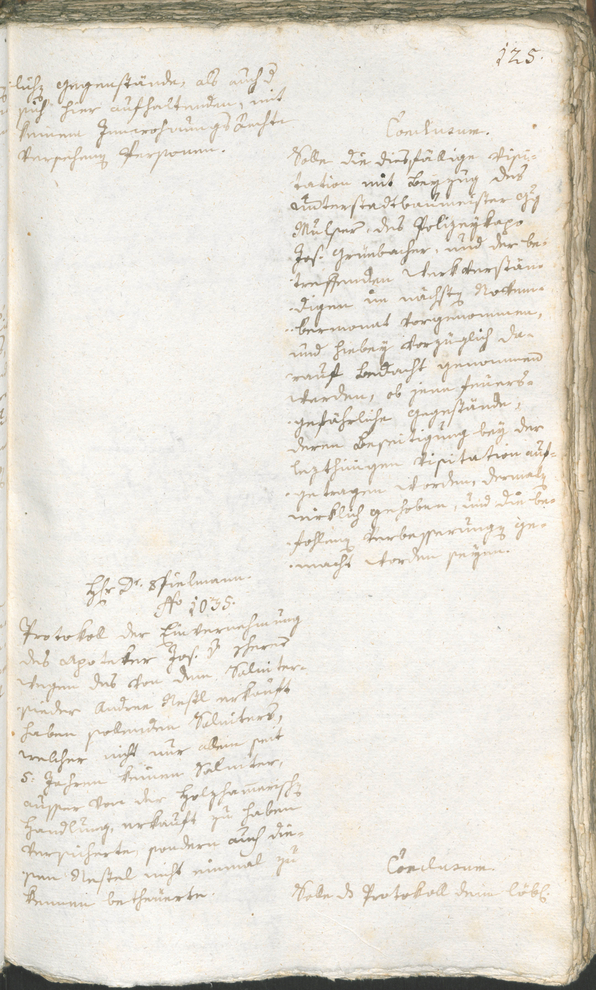 125.
lichz gegenstände, als auch d
sich hier aufhaltenden, mit
keinem Innwohnungs Rechte
versehenz Personen.
Conclusum.
Solle die diesfällige Visi-
tation mit Beyzug des
Unterstadtbaumeister
Mulser, des Polizey
Jos. Gruebacher, und der be-
treffenden Werkverstän-
digen im nächstz Novem-
bermonat vorgenommen,
und hiebey vorzüglich da-
rauf Bedacht genommen
werden, ob jene feuers-
gefährliche Gegestände,
deren Beseitigung bey der
letzthinigen Visitation auf-
getragen worden, dermalz
wirklich gehoben, und die be-
fohlenz Verbesserungz ge-
macht worden seyen.
Hhr Dr. Spielmann.
No 1035.
Protokoll der Einvernehmung
des Apoteker Jos. v
wegen des von dem Saliniter-
sieder Andrea Nestl erkauft
haben sollenden Saliniters,
welcher nicht nur allein seit
5. Jahren keinen Saliniter,
ausser von der Holzhamerischz
Handlung erkauft zu haben
versicherte, sondern auch die-
sen Nestel nicht einmal zu
kennen betheuerte.
Conclusum.
Solle ds Protokoll dem löbl: